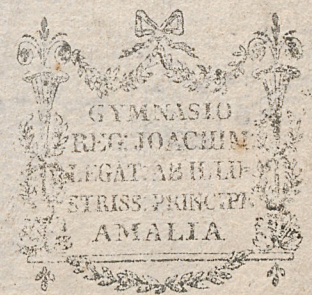 GYMNASIO
REG: JOACHIM:
LEGAT: AB ILLU-
STRISS: PRINCIPE
AMALIA